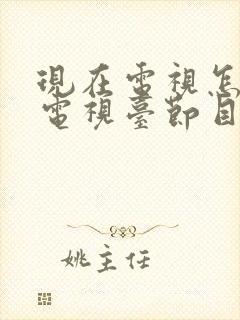 現在電視怎
電視臺節目
姚主任